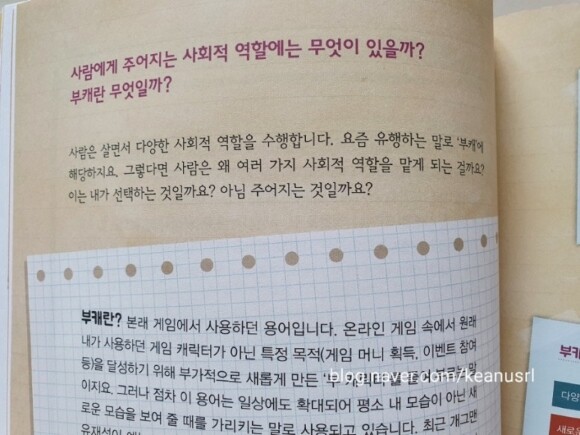 사람에게 주어지는 사회적 역할에는 무엇이 있을까?
부캐란 무엇일까?
사람은 살면서 다양한 사회적 역할을 수행합니다. 요즘 유행하는 말로 '부캐'에
해당하지요. 그렇다면 사람은 왜 여러 가지 사회적 역할을 맡게 되는 걸까요?
이는 내가 선택하는 것일까요? 아님 주어지는 것일까요?
부캐란? 본래 게임에서 사용하던 용어입니다. 온라인 게임 속에서 원래
내가 사용하던 게임 캐릭터가 아닌 특정 목적(게임 머니 획득, 이벤트 참여
등)을 달성하기 위해 부가적으로 새롭게 만든
blog.naver.com/keanusrl
이지요. 그러나 점차 이 용어는 일상에도 확대되어 평소 내 모습이 아닌 새
로운 모습을 보여 줄 때를 가리키는 말로 사용되고 있습니다. 최근 개그맨
유재석이
부캐
다양
새로운